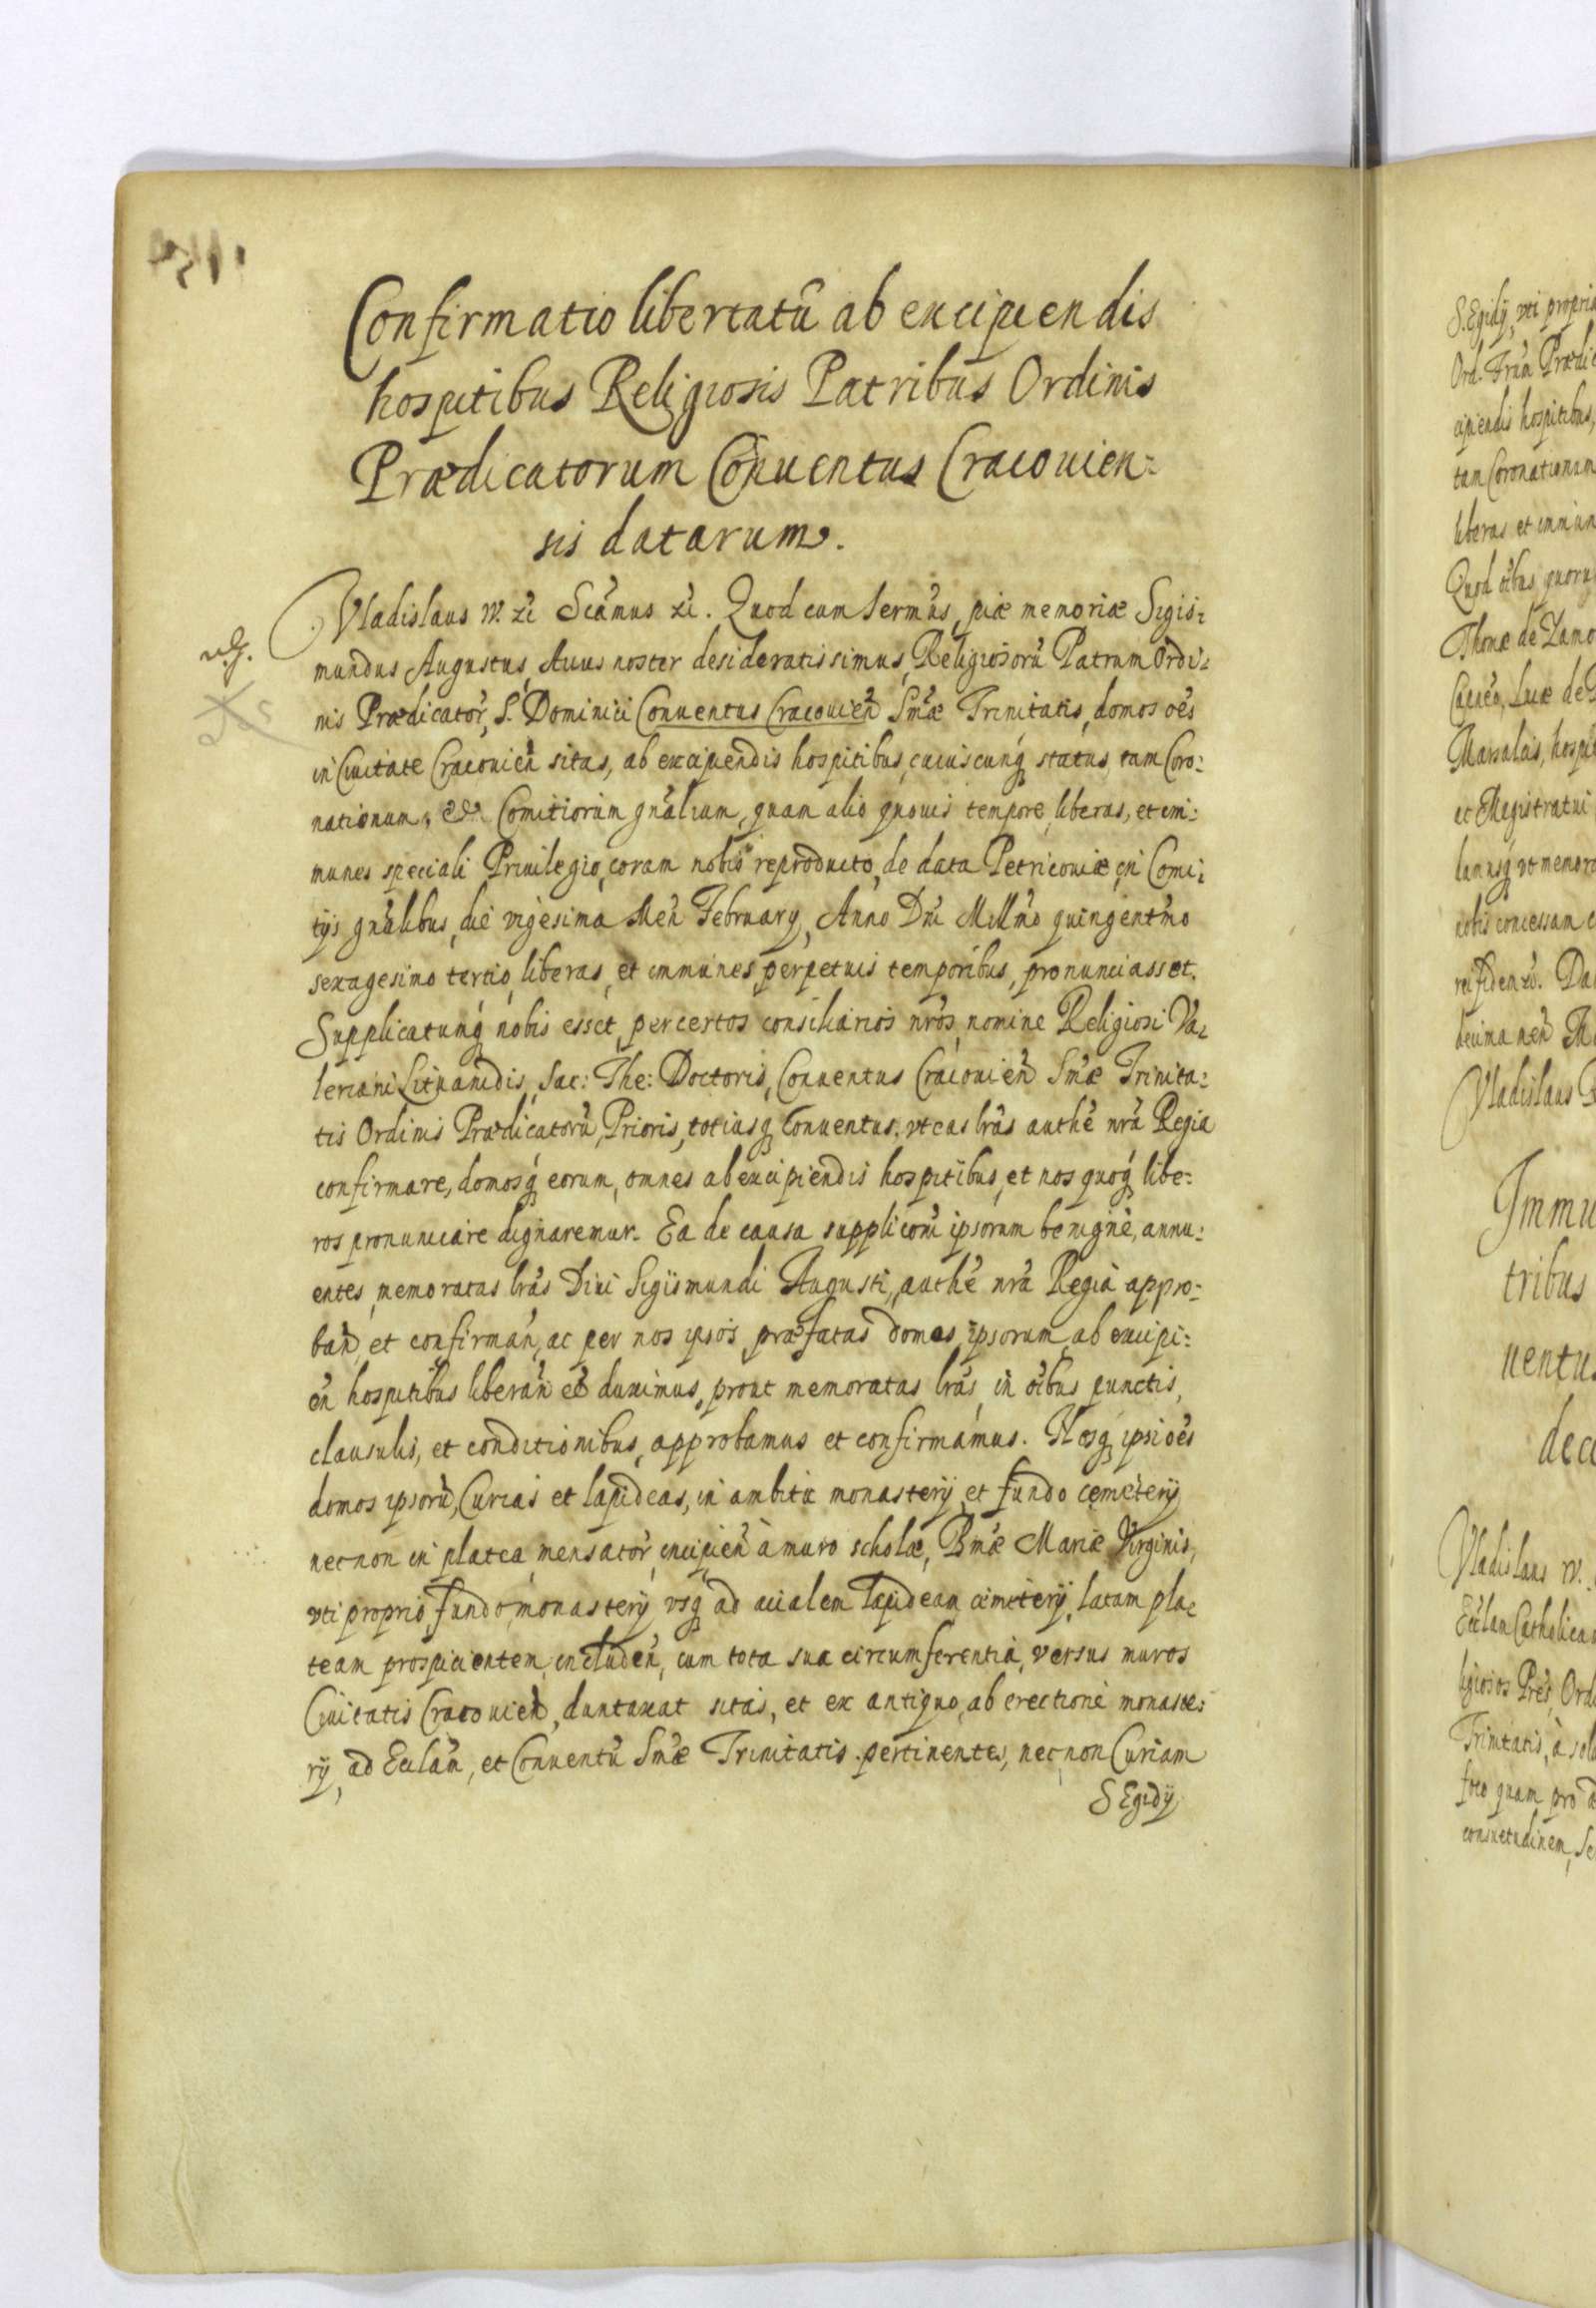 Confirmatio libertatū ab excipiendis
hospitibus Religiosis Patribus Ordinis
Prædicatorum Conuentus Cracouien:
sis datarum.
Vladislaus IV. Quod cum Sermus, piæ memoriæ Sigis:
mundus Augustus, Auus noster desideratissimus, Religiosorū Patrum Ordi:
nis Prædicator, S. Dominici Conuentus Cracouien Smæ Trinitatis, domos oes
in Ciuitate Cracouien sitas, ab excipiendis hospitibus, cuiuscunq status, tam Coro:
nationum, Comitiorum gnalium, quam alio quouis tempore, liberas, et im:
munes speciali Priuilegio, coram nobis reproducto, de data Petricouiæ in Comi:
tijs gnalibus, die vigesima Men February, Anno Dni Millmo quingentmo
sexagesimo tertio, liberas, et immunes, perpetuis temporibus, pronunciasset.
Supplicatumq nobis esset, per certos consiliarios nros, nomine Religiosi Va:
leriani Lituanidis, Sac: The: Doctoris, Conuentus Cracouien Smæ Trinita:
tis Ordinis Prædicatorū, Prioris, totiusq Conuentus, vt eas lras authe nra Regia
confirmare, domosq eorum, omnes ab excipiendis hospitibus, et nos quoq libe:
ros pronunciare dignaremur. Ea de causa suppliconi ipsorum benigne, annu:
entes, memoratas lras Diui Sigismundi Augusti, authe nra Regia appro:
ban, et confirman, ac per nos ipsos, præfatas domos, ipsorum, ab excipi:
en hospitibus liberan duximus, prout memoratas lras, in oibus punctis,
clausulis, et conditionibus, approbamus et confirmamus. ipsi oes
domos ipsorū, Curias et lapideas, in ambitu monasterij, et fundo cemeterij
necnon in platea, mensator, incipien à muro scholæ, Bmæ Mariæ Virginis,
vti proprio fundo monasterij vsq ad acialem lapideam cimeterij, latam pla:
team prospicientem, includen, cum tota sua circumferentia, versus muros
Ciuitatis Cracouien, duntaxat sitas, et ex antiquo, ab erectione monaste:
rij, ad Ecclan, et Conuentū Smæ Trinitatis pertinentes, necnon Curiam
S Egidij
S. Egidij, vti
Ord. Frum
cipiendis hospitibus,
tam Coronationum
liberas et
Quod oibus
Thomæ de
Lucæ de
et Magistratui
nobis concessam
rei fidem
decima men
Vladislaus
Immu
tribus
uentu
dece
Vladislaus IV.
Ecclan
ligiosos Pres, Ord
Trinitatis, à
foro quam pro
consuetudinem,